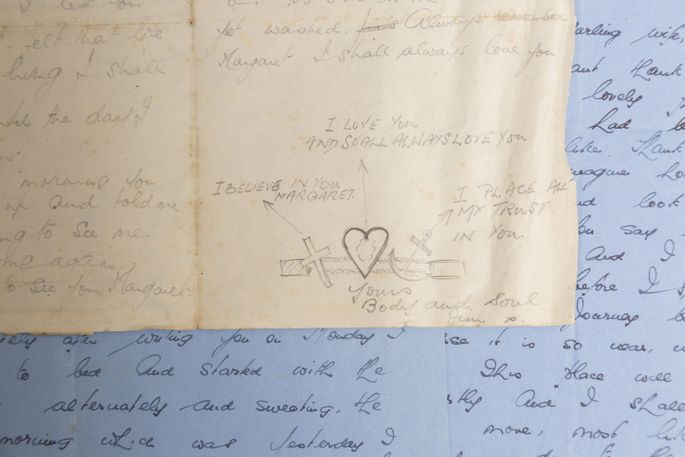 felt that life
living I shall
the day I
morning you
up and told me
to see me
me again.
to see you Margaret
yet washed. Always remember
Margaret I shall always love you
I LOVE YOU
AND SHALL ALWAYS LOVE YOU
I BELIEVE IN YOU
MARGARET.
I PLACE ALL
MY TRUST
IN YOU
Yours
Body and Soul
Jim x.
arling wife,
ant thank
lovely
had be
like thank
imagine ho
and look
you say
And I
before I s
Journey be
after writing you on Monday I
to bed And started with the
alternately and sweating. the
morning which was yesterday I
it is so near, u
This place will
stly And I shall
more, most lik